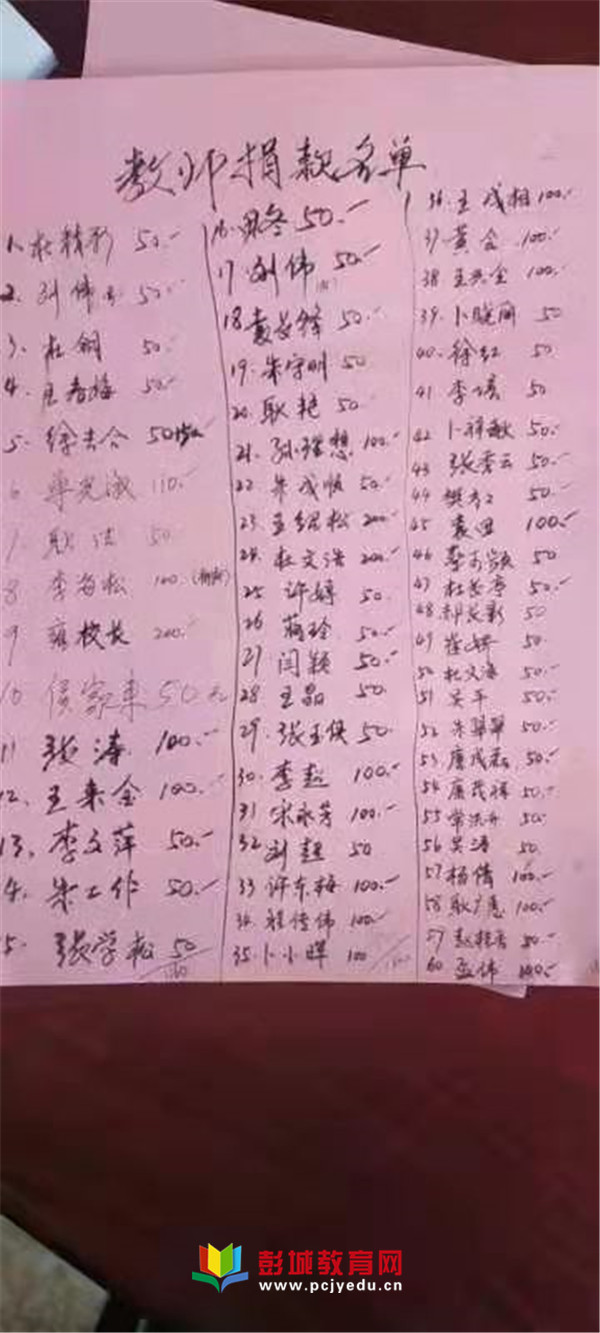 教师捐款名单
1. 杜精彩 50.-
2. 刘伟 50.-
3. 杜钢 50.
4. 王春梅 50.-
5. 徐夫合 50
6 110.-
7 耿洁 50
8 李海松 100.
9 雍校长 200.-
10 侯家东 50元
11 张涛 100.-
12. 王来金 100.-
13. 李文萍 50.-
14. 朱工作 50.-
15. 张学松 50
16. 冬 50.-
17 刘伟 50.-
18 袁长锋 50.-
19. 朱守明 50
20. 耿艳 50.
21. 孙理想 100.-
22. 朱成顺 50.-
23. 孟绍松 200.-
24. 杜文浩 200.-
25 许婷 50.
26 蒋玲 50.-
27 闫颖 50.-
28 王晶 50.
29. 张玉侠 50.
30. 李超 100.-
31 宋永芳 100.-
32 刘超 50
33 许东梅 100.-
34. 程传伟 100.-
35. 卜小晖 100
36. 王成相 100.-
37 黄会 100.-
38 王兴全 100.-
39. 卜晓刚 50
40. 徐红 50
41 李倩 50
42 卜祥敏 50.-
43 张秀云 50.-
44 樊 50.-
45 袁思 100.-
46 李 50
47 杜长亭 50.-
48 长彩 50
49 崔娇 50.
50 杜文海 50.
51 吴平 50.-
52 朱翠翠 50.-
53 唐茂磊 50.-
54 唐茂祥 50.-
55 常洪升 50.-
56 吴涛 50.
57 杨倩 100.-
58 耿广惠 100.-
59 赵 50.-
60 孟伟 200.-
彭城教育网
www.pcjyedu.cn